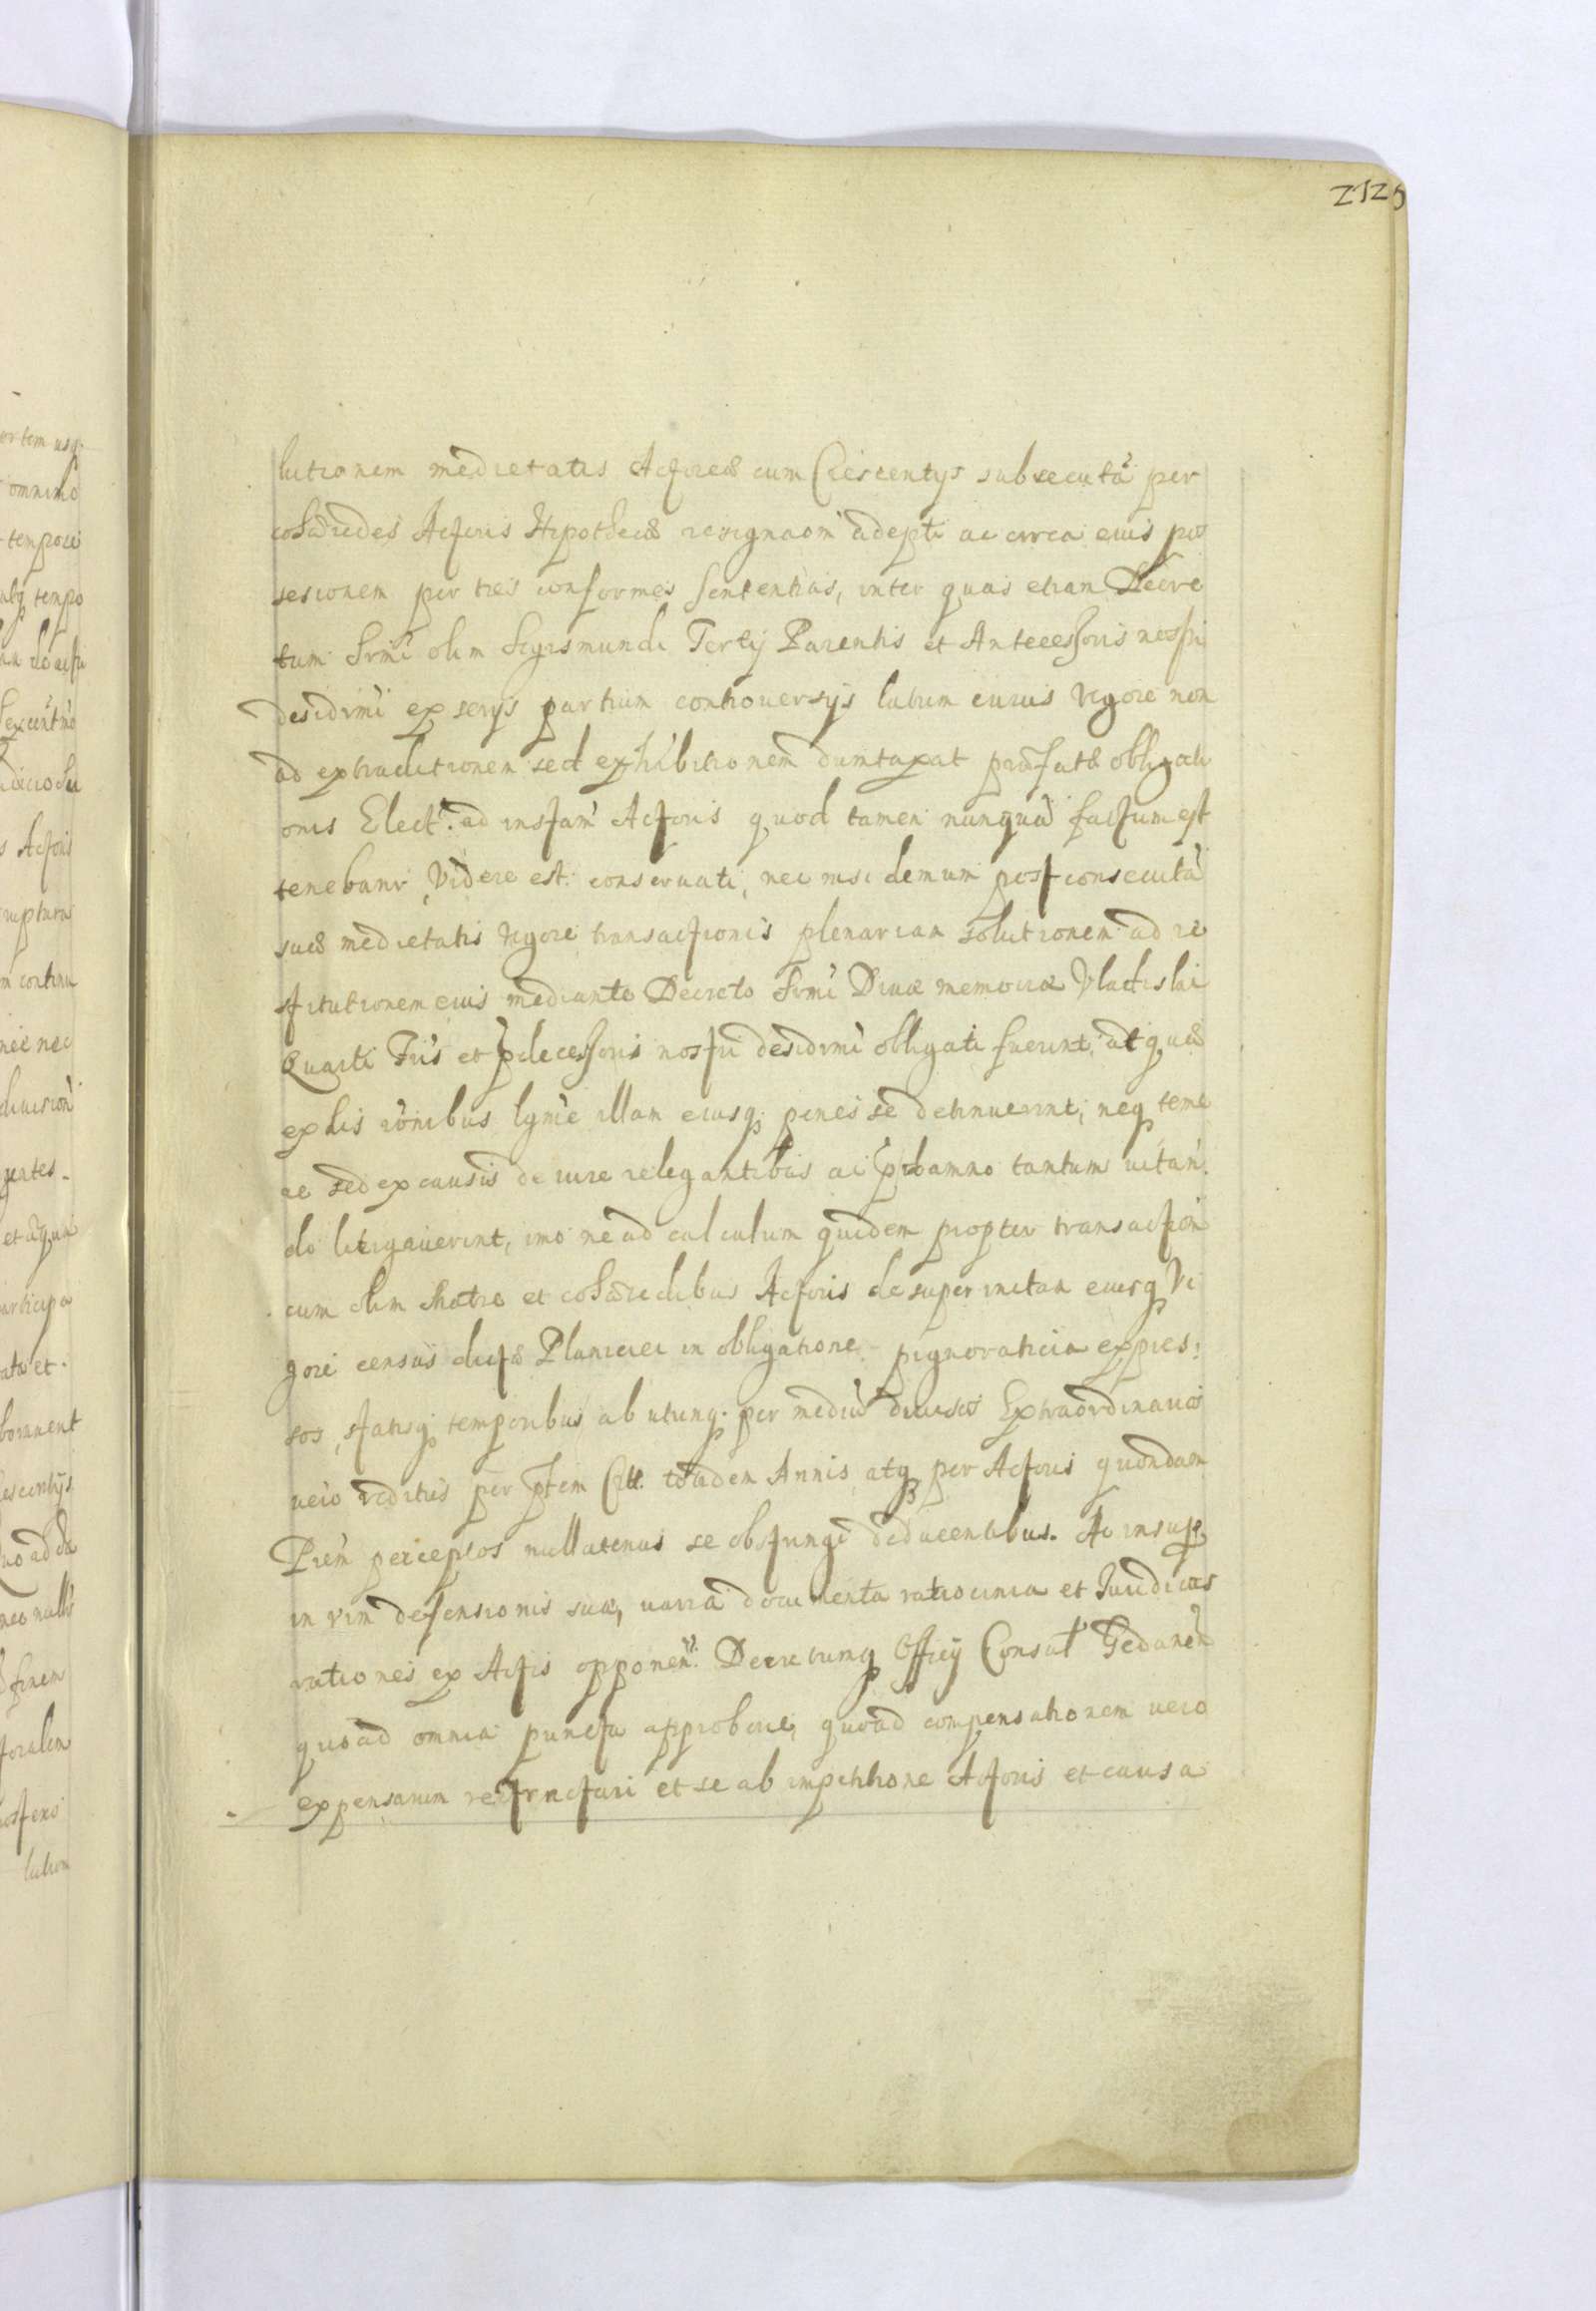 2125
lutionem medietatis Actoreæ cum Crescentys subsecutâ per
cohæredes Actoris Hipothecæ resignaom̃ adepti ac circa eius pos
sesionem per tres conformes sententias, inter quas etiam Decre
tum Srm̃i olim Sigismundi Tertij Parentis et Antecessoris nostri
desidrm̃i ex serys partium controuersys latum cuius vigore non
ad extraditionem sed exhibitionem dumtaxat præfatæ obligati
onis Elect: ad instam̃ Actoris quod tamen nunquã factum est
tenebanr, Videre est. conseruati, nec nisi demum post consecutã
suæ medietatis vigore transactionis plenariam solutionem ad re
stitutionem eius mediante Decreto Srm̃i Divæ memoriæ Vladislai
Quarti Fr̃is et Pdecessoris nostri desidrm̃i obligati fuerint; at quæ
ex his rõnibus lgm̃e illam eiusq penes se detinuerint, neq teme
re sed ex causis de iure relegantibus ac p damno tantum uitan.
do litigauerint, imo ne ad calculum quidem propter transaction̄
cum olim Matre et cohæredibus Actoris desuper initam eiusq Vi
gore census dictæ Planiciei in obligatione pignoraticia expres:
sos, statisq temporibus ab utrinq. per mediũ diuisos Extraordinarios
uero reditus per ptem Citt. totidem Annis, atq per Actoris quondam
Prem̃ perceptos nullatenus se obstringi deducentibus. Ac insup
in vim defensionis suæ, varia documenta ratiocinia et Iuridicas
rationes ex Actis opponen̄: Decretumq Officij Consul Gedanen̄
quoad omnia puncta approbare, quoad compensationem uero
expensarum refractari et se ab impetitione Actoris et causa